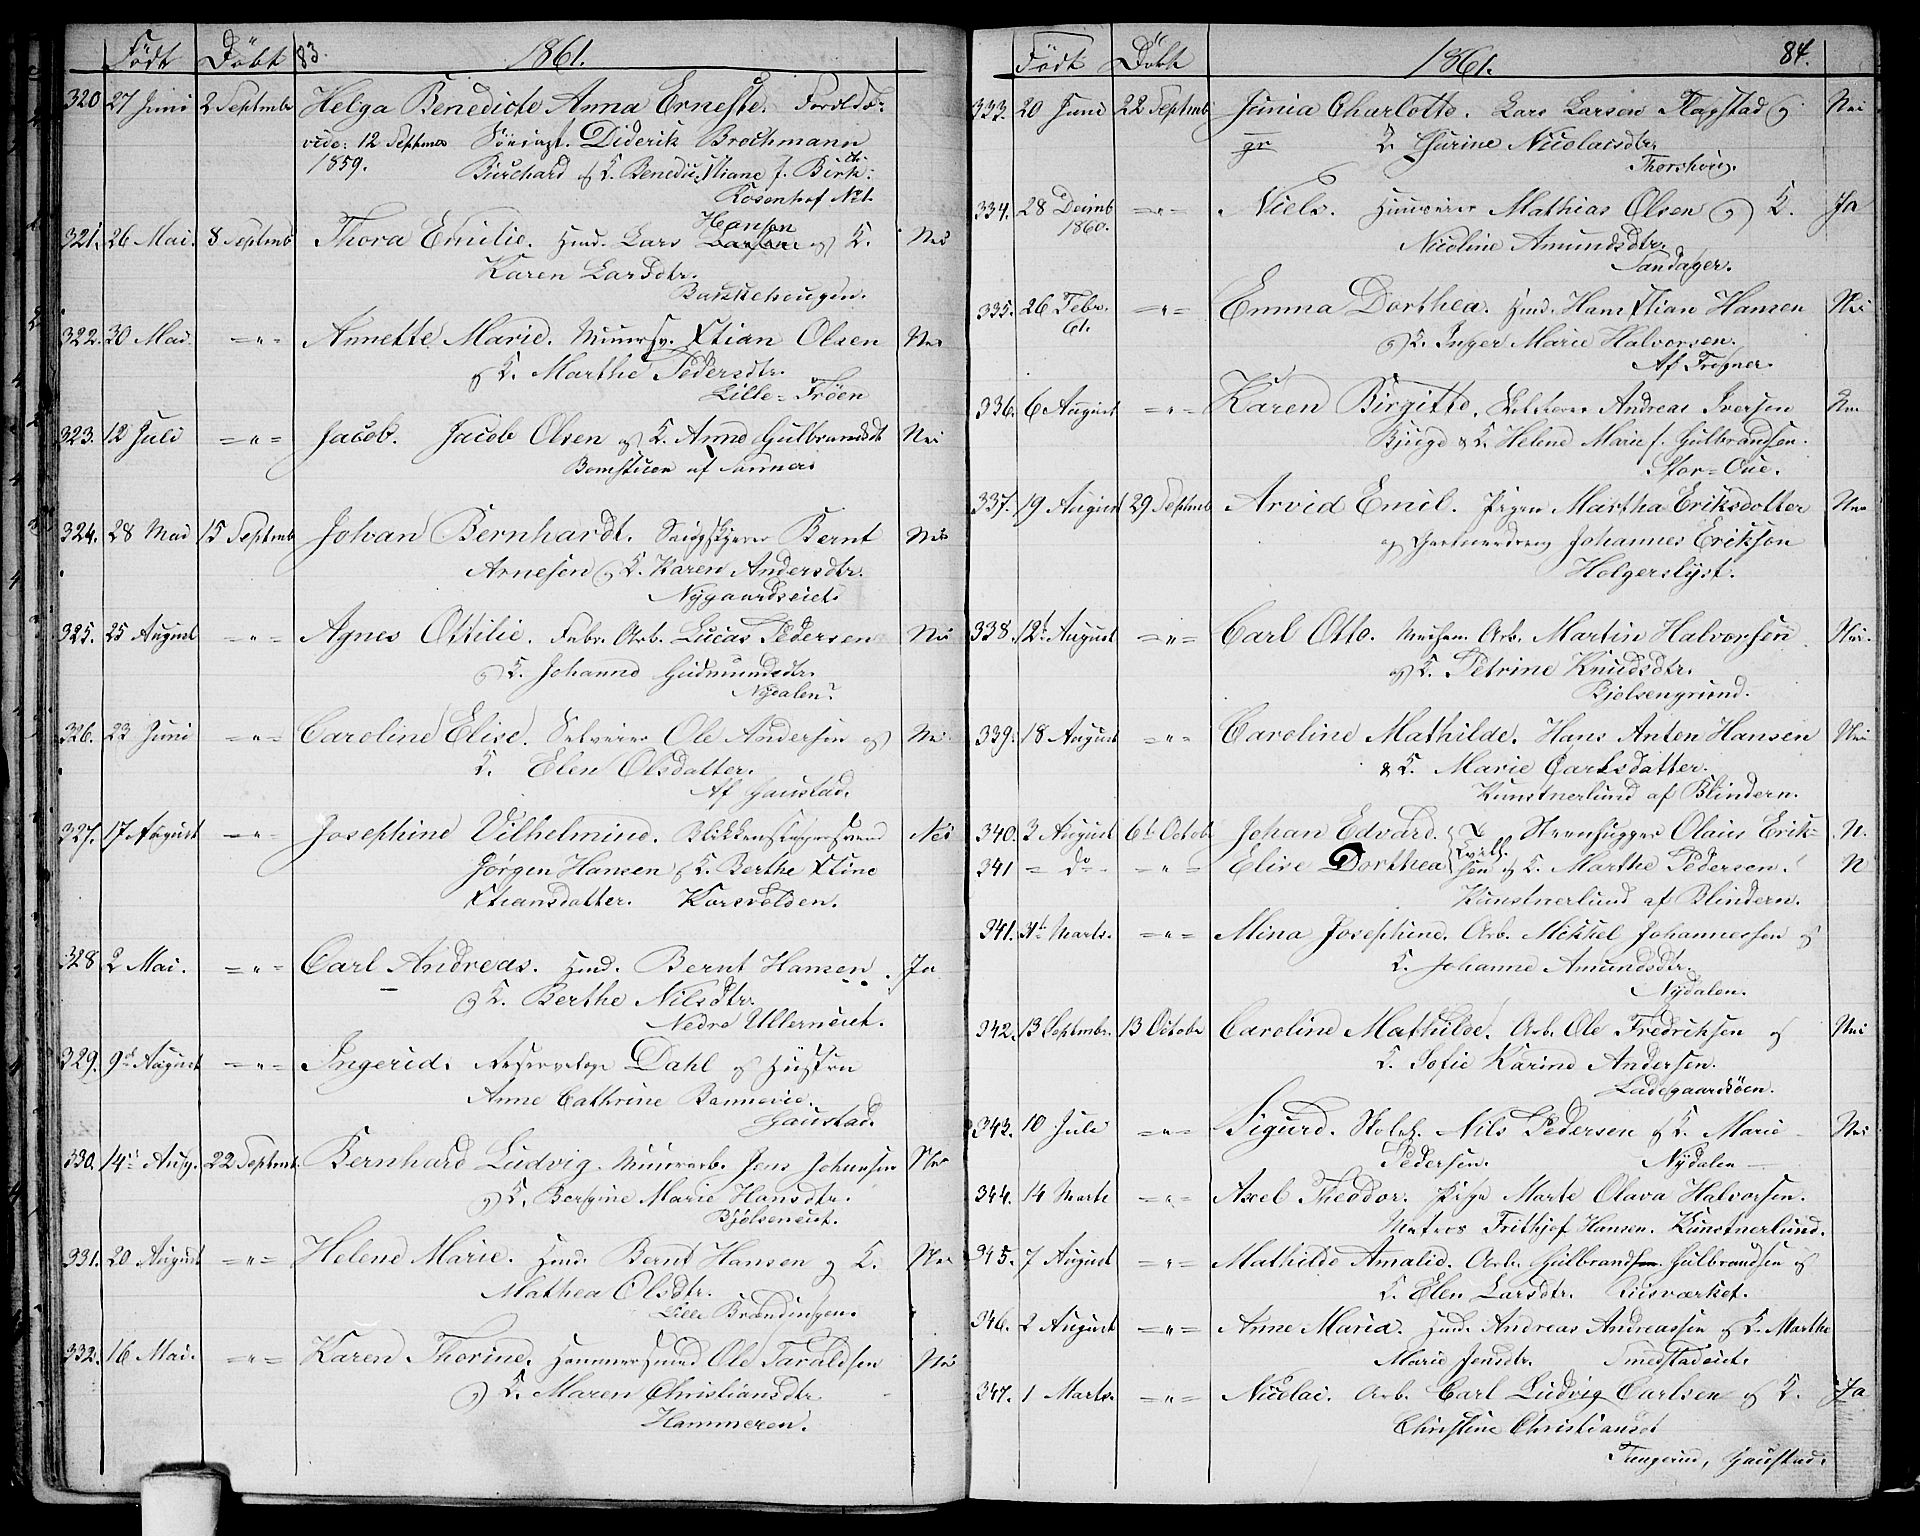 Født Døbt 83. 1861.
320 27 Juni 2 Septembr Helga Benedicte Anna Erneste. Foreldr.
vide: 12 Septembr Diderik Brochmann
1859. Burchard og K. Benedicte Xtiane f. Birch:
Rosenhof No 1.
Hansen
321. 26 Mai. 8 Septembr Thora Emilie. Huusm. Lars Larsen og K. Nei
Karen Larsdtr.
Bakkehougen.
322. 30 Mai. = " = Annette Marie. Muursv. Xtian Olsen Nei
og K. Marthe Pedersdtr.
Lille-Frøen
323. 12 Juli = " = Jacob. Jacob Olsen og K. Anne Gulbrandsdt Nei
Bomstuen af
324. 28 Mai 15 Septembr Johan Bernhardt. Bernt Nei
Arnesen og K. Karen Andersdtr.
Nygaardseiet.
325. 25 August = " = Agnes Ottilie. Fabr. Arb. Lucas Pedersen Nei
og K. Johanne Gudmundsdtr.
Nydalen.
326. 23 Juni = " = Caroline Elise. Selveier Ole Andersen og Nei
K. Elen Olsdatter.
Af Gaustad.
327. 17 August = " = Josephine Vilhelmine. Blikkenslagersvend Nei
Jørgen Hansen og K. Berthe Xtine
Xtiansdatter. Korsvolden.
328 2 Mai. = " = Carl Andreas. Huusm. Bernt Hansen. Ja
og K. Berthe Nilsdtr.
Nedre Ullerneiet.
329. 9de August = " = Ingerid. Reservelæge Dahl og Hustru
Anne Cathrine Bennevie.
Gaustad.
330. 14de Aug. 22 Septembr. Bernhard Ludvig. Muurerarb. Jens Johansen Nei
og K. Bergine Marie Hansdtr.
Bjølseneiet.
331. 20 August = " = Helene Marie. Huusm. Bernt Hansen og K. Nei
Mathea Olsdtr.
Lille Brændingen.
332. 16 Mai. = " = Karen Thorine. Hammersmed Ole Taraldsen Nei
og K. Maren Christiansdtr
Hammeren.
Født Døbt 1861. 84.
333. 20 Juni 22 Septembr Junia Charlotte. Lars Larsen Flagstad og Nei
K. Thurine Nicolaisdtr.
Thorshoug.
334. 28 Decmb = " = Niels. Huuseier Mathias Olsen og K. Ja
1860. Nicoline Amundsdtr.
Sandager.
335. 26 Febr. = " = Emma Dorthea. Huusm. Hans Xtian Hansen Nei
61. og K. Inger Marie Halvorsen.
Af Frogner.
336. 6 August = " = Karen Birgitte. Andreas Iversen Nei
Bjuge & K. Helene Marie f. Gulbrandsen.
Stor-Oue.
337. 19 August 29 Septemb Arvid Emil. Pigen Martha Eriksdotter Nei
og Johannes Erikson
Holgerslyst.
338. 12te August = " = Carl Otto. Arb. Martin Halvorsen Nei.
og K. Petrine Knudsdtr.
Bjølsengrund.
339. 18 August = " = Caroline Mathilde. Hans Anten Hansen Nei
& K. Marie Carlsdatter.
Kunstnerlund af Blindern.
340. 2 August 6te Octobr Johan Edvard. Steenhugger Olaus Erik- N.
Tvill.
341 = do = " = Elise Dorthea sen og K. Marthe Pedersen. N
Kunstnerlund af Blindern.
341. 31te Marts. = " = Mina Josephine. Arb. Mikkel Johannessen og
K. Johanne Amundsdtr.
Nydalen.
342. 13 Septembr. 13 Octobr Caroline Mathilde. Arb. Ole Fredriksen og Nei
K. Sofie Karine Andersen.
Ladegaardsøen.
343. 10 Juli = " = Sigurd. Nils Pedersen og K. Marie Nei
Pedersen. Nydalen
344. 14 Marts = " = Axel Theodor. Pige Marte Olava Halvorsen.
Matros Frithjof Hansen. Kunstnerlund.
345. 7 August = " = Mathilde Amalie. Arb. Gulbrand Gulbrandsen og
K. Elen Larsdtr. Riisværket.
346. 2 August = " = Anne Maria. Huusm. Andreas Andreassen og K. Marthe
Marie Jensdtr. Smestadeiet.
347. 1 Marts. = " = Nicolai. Arb. Carl Ludvig Carlsen og K. Ja
Christine Christiansdt
Tungerud, Gaustad.